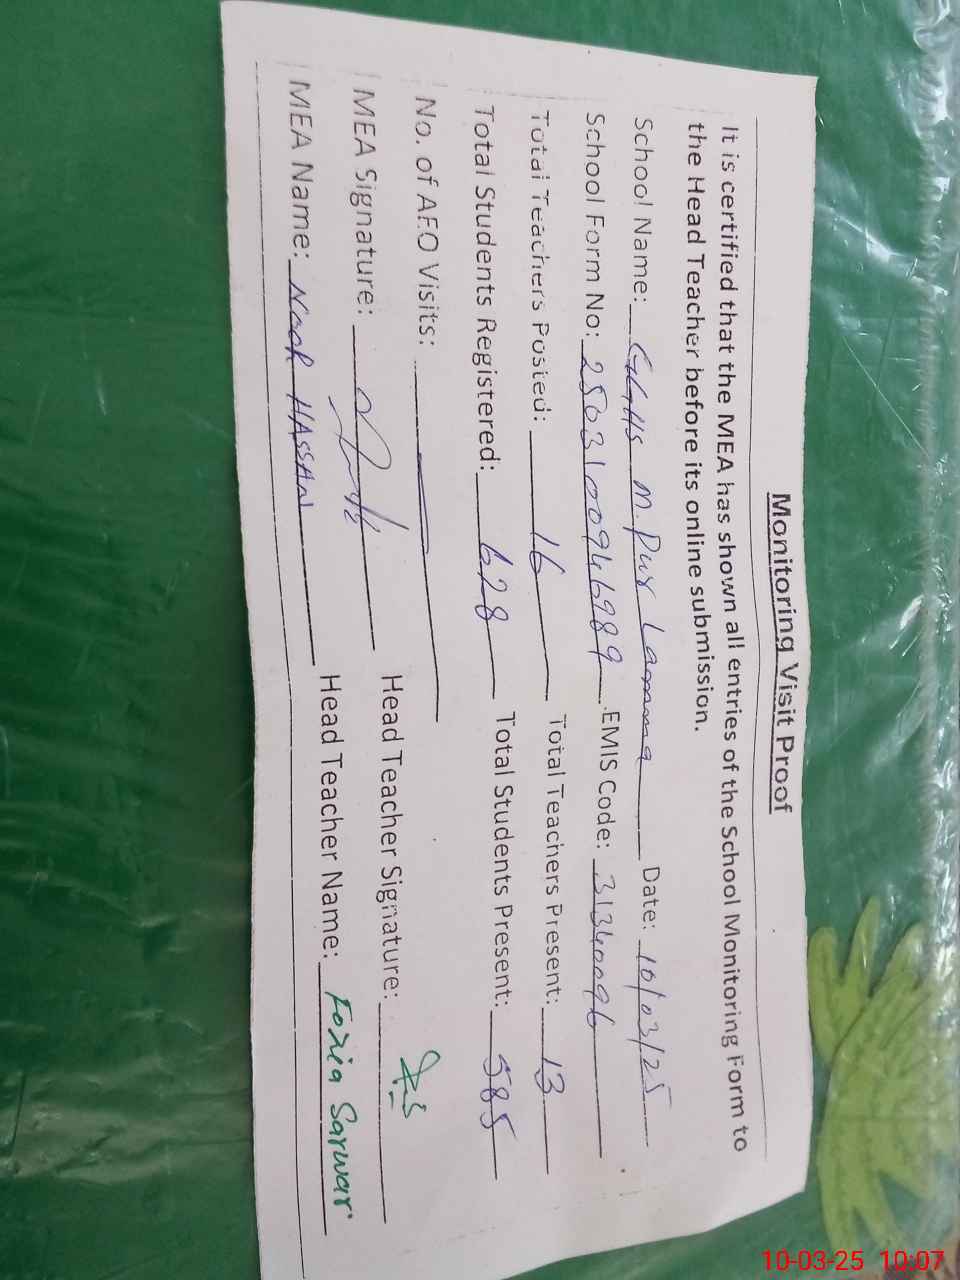 Monitoring Visit Proof
It is certified that the MEA has shown all entries of the School Monitoring Form to
the Head Teacher before its online submission.
School Name: GGHS M. Pur Lamma Date: 10/03/25
School Form No: 2503100946989 EMIS Code: 31340096
Total Teachers Posted: 16 Total Teachers Present: 13
Total Students Registered: 628 Total Students Present: 585
No. of AEO Visits:
MEA Signature: Head Teacher Signature:
MEA Name: NOOR HASSAN Head Teacher Name: Fozia Sarwar
10-03-25 10:07